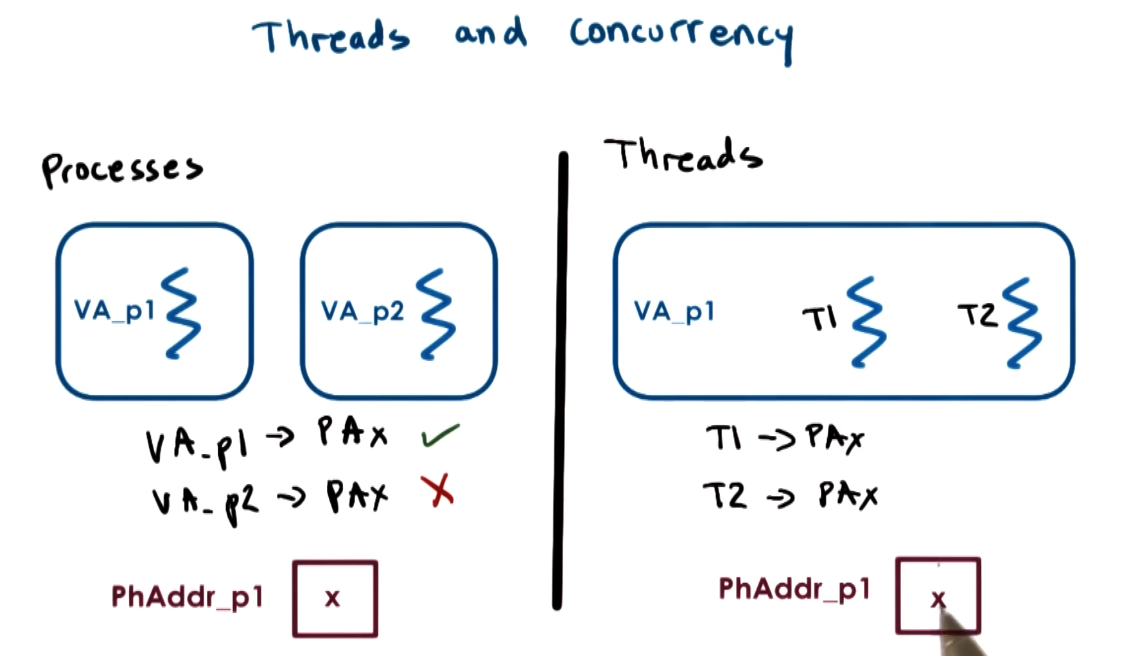 Threads and Concurrency
Processes
VA_p1
VA_p2
VA_p1 → PAx ✓
VA_p2 → PAx X
PhAddr_p1
x
Threads
VA_p1
T1
T2
T1 → PAx
T2 → PAx
PhAddr_p1
x